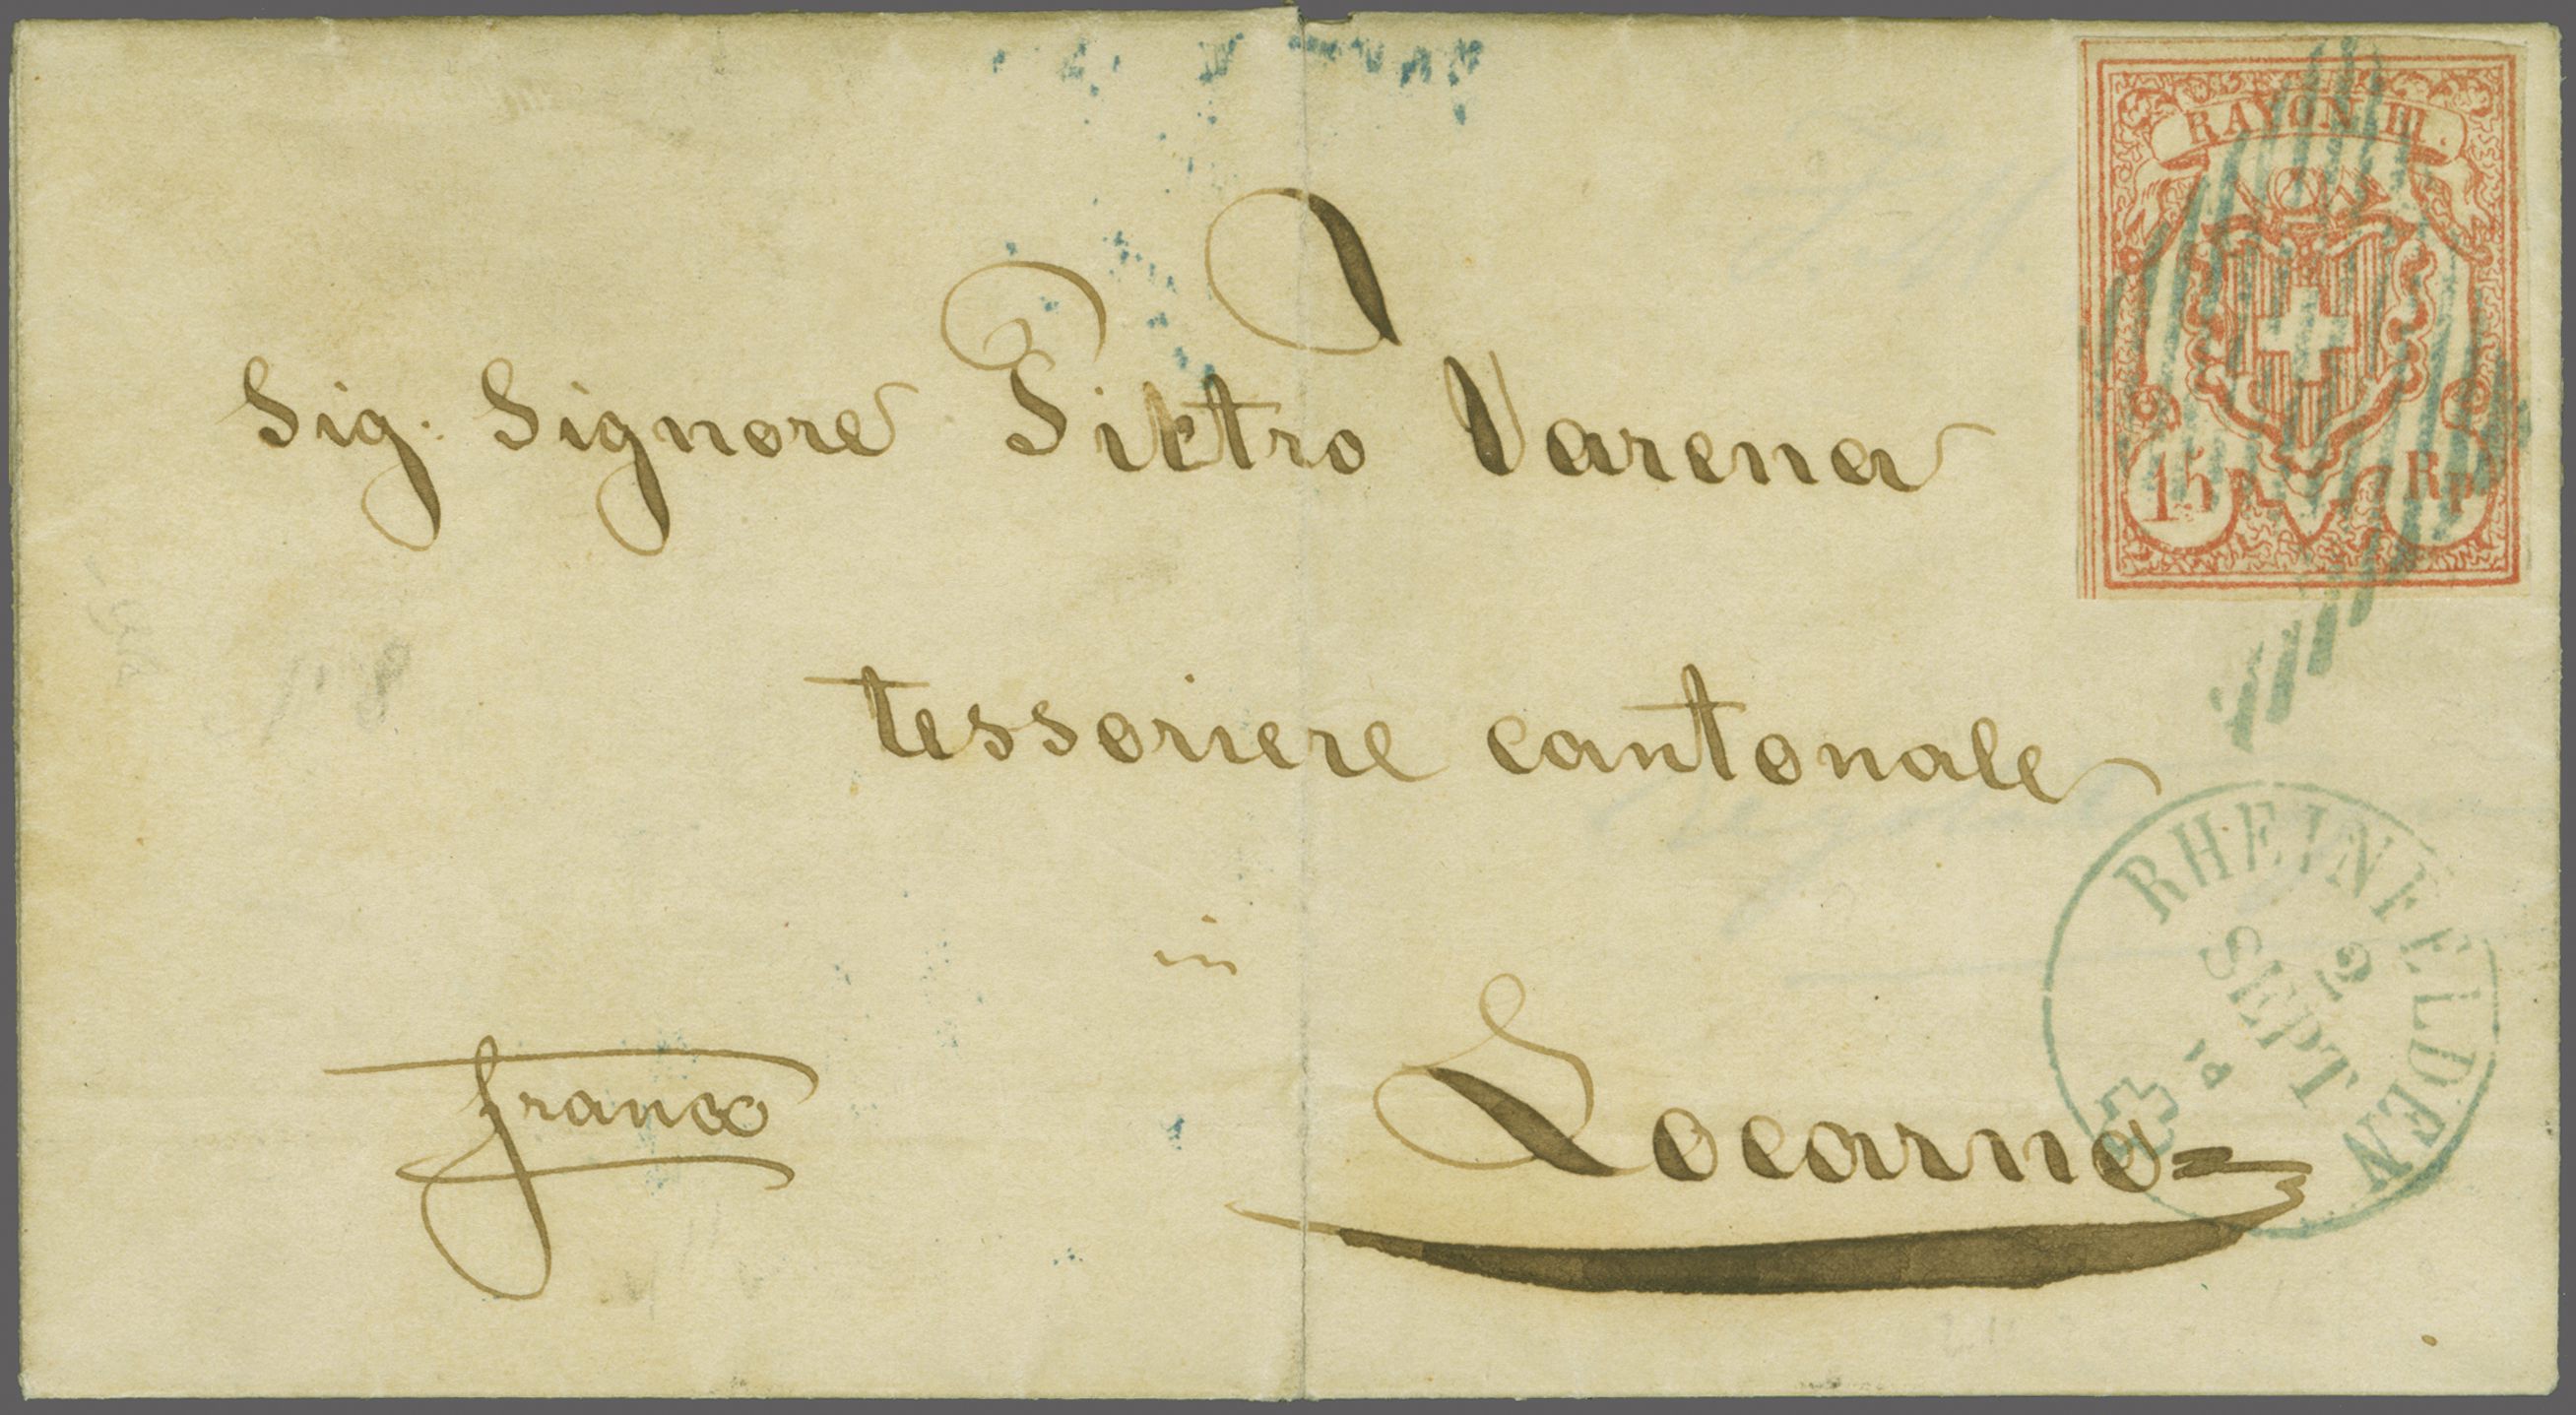 RAYON III.
15 Rp
Sig. Signore Pietro Varena
tessoriere cantonale
RHEINFELDEN
SEPT
in
franco
Locarno